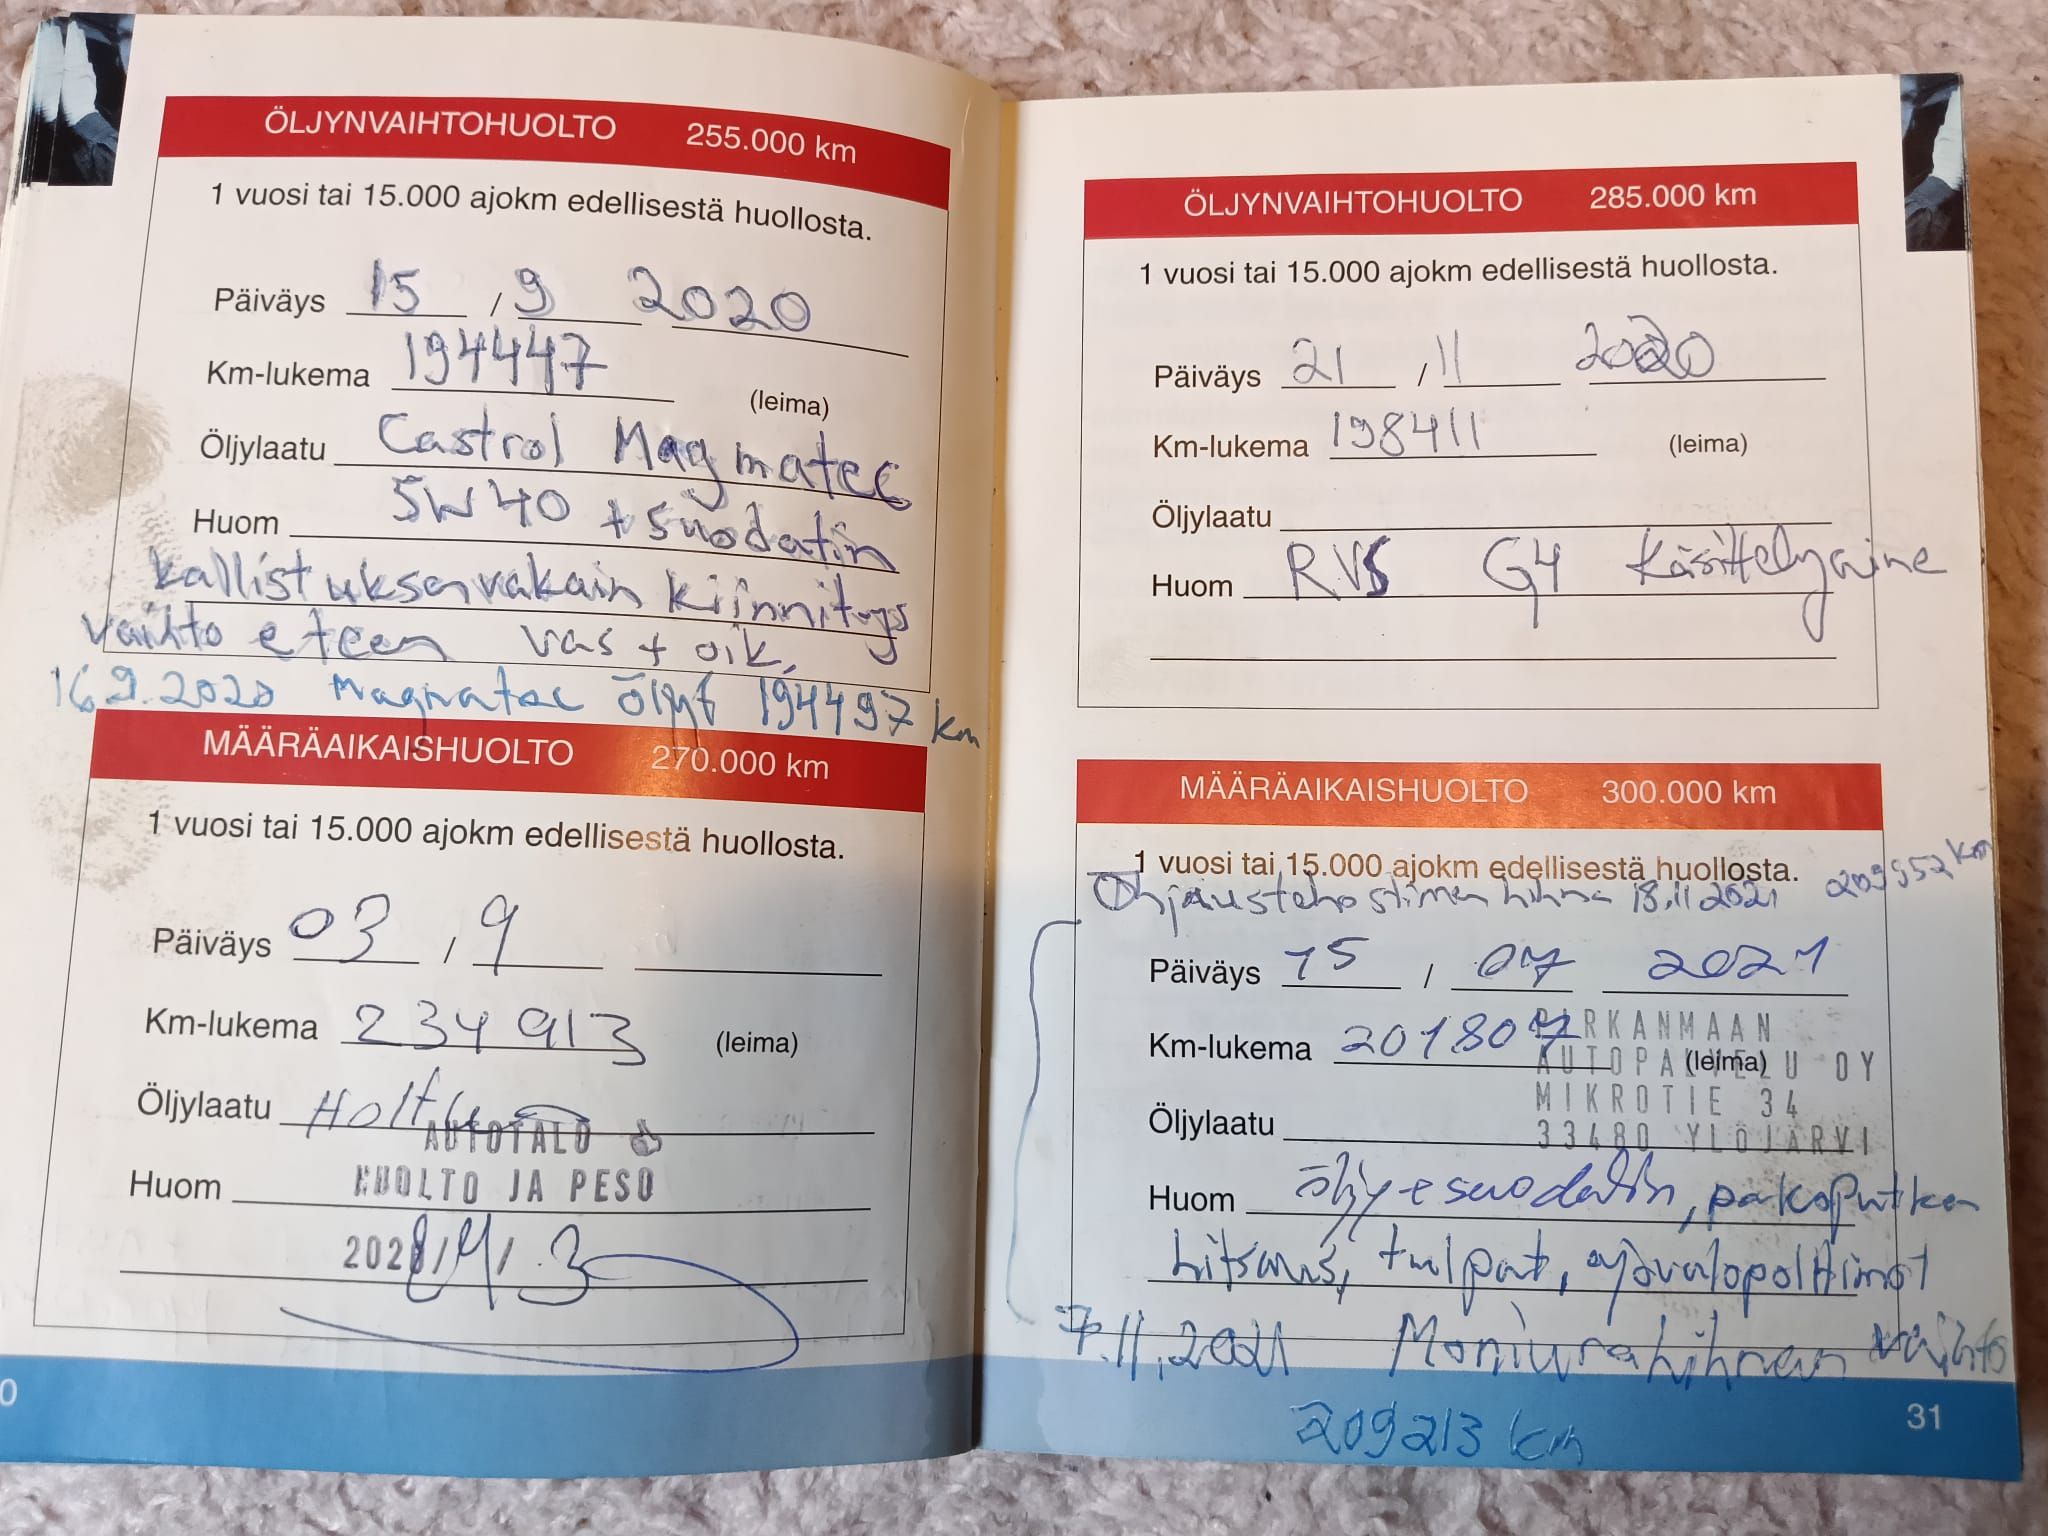 ÖLJYNVAIHTOHUOLTO 255.000 km
1 vuosi tai 15.000 ajokm edellisestä huollosta.
Päiväys 15 / 9 2020
Km-lukema 194447 (leima)
Öljylaatu Castrol Magmatec
Huom 5W40 + suodatin
kallistuksenvakain kiinnitys
vaihto eteen vas + oik,
16.9.2020 Magnatec öljyt 194497 km
MÄÄRÄAIKAISHUOLTO 270.000 km
1 vuosi tai 15.000 ajokm edellisestä huollosta.
Päiväys 03 / 9
Km-lukema 234913 (leima)
Öljylaatu
AUTOTALO
Huom HUOLTO JA PESU
0
ÖLJYNVAIHTOHUOLTO 285.000 km
1 vuosi tai 15.000 ajokm edellisestä huollosta.
Päiväys 21 / 11 2020
Km-lukema 198411 (leima)
Öljylaatu
Huom RVS G4 Käsittelyaine
MÄÄRÄAIKAISHUOLTO 300.000 km
1 vuosi tai 15.000 ajokm edellisestä huollosta.
Ohjaustehostimen hihna 18.11.2021 209952 km
Päiväys 15 / 07 2021
PIRKANMAAN
Km-lukema 201807 (leima)
AUTOPALVELU OY
MIKROTIE 34
Öljylaatu
33480 YLÖJÄRVI
Huom öljy+suodatin, pakoputken
hitsaus, tulpat, ajovalopolttimot
7.11.2021 Moniurahihnan vaihto
209213 km
31